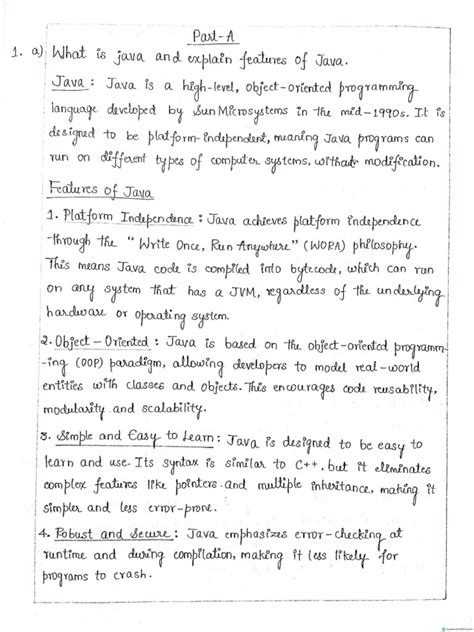 Part-A
1. a) What is java and explain features of Java.
Java : Java is a high-level, object-oriented programming
language developed by Sun Microsystems in the mid-1990s. It is
designed to be platform-independent, meaning Java programs can
run on different types of computer systems, without modification.
Features of Java
1. Platform Independence : Java achieves platform independence
through the "Write Once, Run Anywhere" (WORA) philosophy.
This means Java code is compiled into bytecode, which can run
on any system that has a JVM, regardless of the underlying
hardware or operating system.
2. Object-Oriented : Java is based on the object-oriented programm-
-ing (OOP) paradigm, allowing developers to model real-world
entities with classes and objects. This encourages code reusability,
modularity and scalability.
3. Simple and Easy to Learn : Java is designed to be easy to
learn and use. Its syntax is similar to C++, but it eliminates
complex features like pointers and multiple inheritance, making it
simpler and less error-prone.
4. Robust and Secure : Java emphasizes error-checking at
runtime and during compilation, making it less likely for
programs to crash.